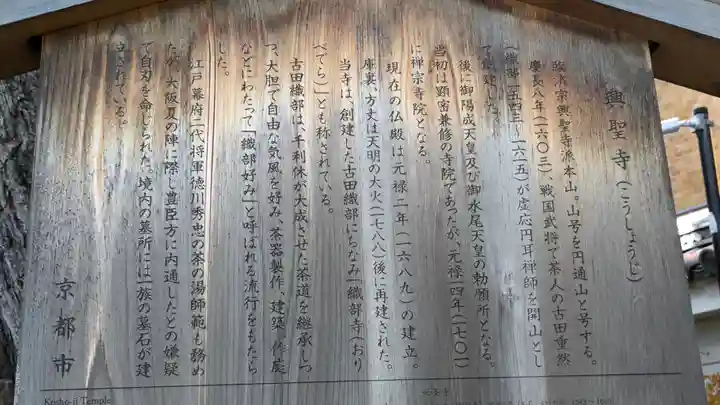 興聖寺（こうしょうじ）
臨済宗興聖寺派本山。山号を円通山と号する。
慶長八年（一六〇三）、戦国武将で茶人の古田重然
（織部 一五四三～一六一五）が虚応円耳禅師を開山とし
て創建した。
後に御陽成天皇及び御水尾天皇の勅願所となる。
当初は顕密兼修の寺院であったが、元禄四年（一七〇一）
に禅宗寺院となる。
現在の仏殿は元禄二年（一六八九）の建立。
庫裏、方丈は天明の大火（一七八八）後に再建された。
当寺は、創建した古田織部にちなみ「織部寺（おり
べでら）」とも称されている。
古田織部は、千利休が大成させた茶道を継承しつ
つ、大胆で自由な気風を好み、茶器製作、建築、作庭
などにわたって「織部好み」と呼ばれる流行をもたら
した。
江戸幕府二代将軍徳川秀忠の茶の湯師範も務め
たが、大阪夏の陣に際し豊臣方に内通したとの嫌疑
で自刃を命じられた。境内の墓所には一族の墓石が建
立されている。
京都市
Kosho-ji Temple